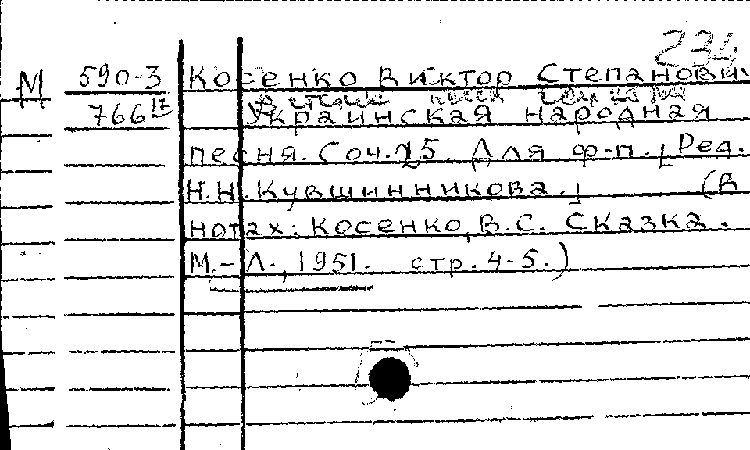 234
М 590-3 Косенко Виктор Степанович
766 17 Украинская народная
песня. Соч. 25 Для ф-п. [Ред.
Н.Н. Кувшинникова.] (В
нотах: Косенко, В.С. Сказка.
М.-Л., 1951. стр. 4-5.)